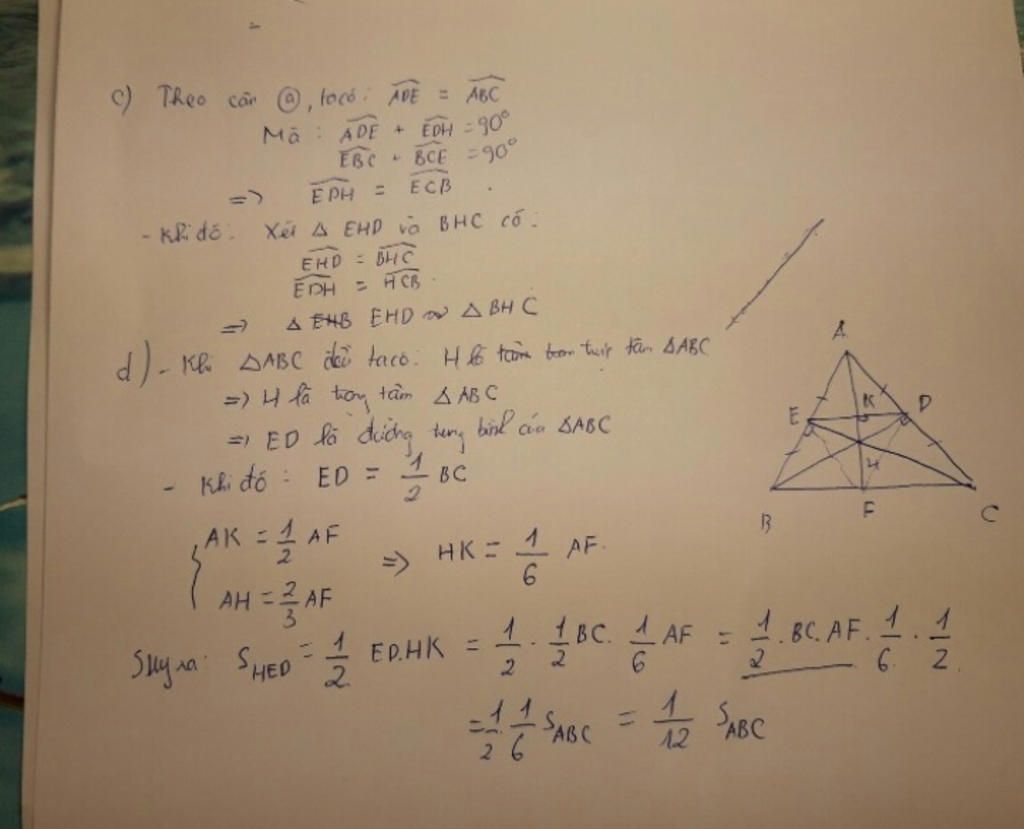 c) Theo câu ⓐ, ta có: ADE = ABC
Mà : ADE + EDH = 90°
EBC + BCE = 90°
=> EDH = ECB .
- Khi đó: Xét Δ EHD và BHC có:
EHD = BHC
EDH = HCB .
=> Δ EHD ∽ Δ BHC
d) - Khi ΔABC đều ta có: H là trực tâm ΔABC
=> H là trọng tâm Δ ABC
=> ED là đường trung bình của ΔABC
- Khi đó : ED = 1/2 BC
{ AK = 1/2 AF
AH = 2/3 AF => HK = 1/6 AF.
Suy ra: S_HED = 1/2 ED.HK = 1/2 . 1/2 BC. 1/6 AF = 1/2 . BC. AF. 1/6 . 1/2.
= 1/2 1/6 S_ABC = 1/12 S_ABC
A
E K D
H
B F C